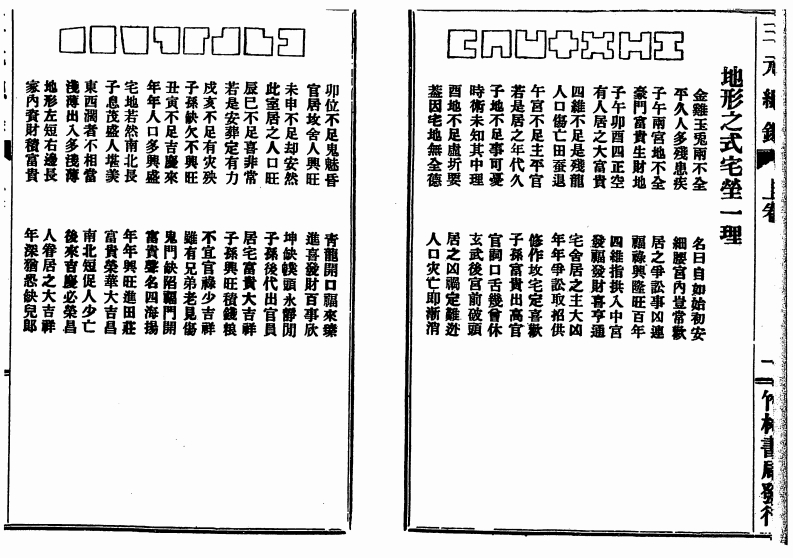 三元總錄 上卷 一 竹林書局發行
地形之式宅塋一理
金雞玉兔兩不全 名曰自如始初安
平久人多殘患疾 細腰宮內豈常歡
子午兩宮地不全 居之爭訟事凶連
豪門富貴生財地 福祿興隆旺百年
子午卯酉四正空 四維指拱入中宮
有人居之大富貴 發福發財喜亨通
四維不足是殘龍 宅舍居之主大凶
人口傷亡田蚕退 年年爭訟取招供
午宮不足主平官 修作坟宅定喜歡
若是居之年代久 子孫富貴出高官
子地不足事可憂 官詞口舌幾曾休
時術未知其中理 玄武後宮前破頭
酉地不足虛圻要 居之凶禍定難逃
蓋因宅地無全德 人口灾亡即漸消
卯位不足鬼魅昏 青龍開口福來臻
官居坟舍人興旺 進喜發財百事欣
未申不足却安然 坤缺頭永靜閒
此室居之人口旺 子孫後代出官員
辰巳不足喜非常 居宅富貴大吉祥
若是安葬定有力 子孫興旺積錢粮
戌亥不足有灾殃 不宜官祿少吉祥
子孫缺欠不興旺 雖有兄弟老見傷
丑寅不足吉慶來 鬼門缺陷福門開
年年人口多興盛 富貴聲名四海揚
宅地若然南北長 年年興旺進田莊
子息茂盛人堪美 富貴榮華大吉昌
東西濶者不相當 南北短促人少亡
淺薄出入多淺薄 後來吉慶必榮昌
地形左短右邊長 人眷居之大吉祥
家內資財積富貴 年深猶恐缺兒郎